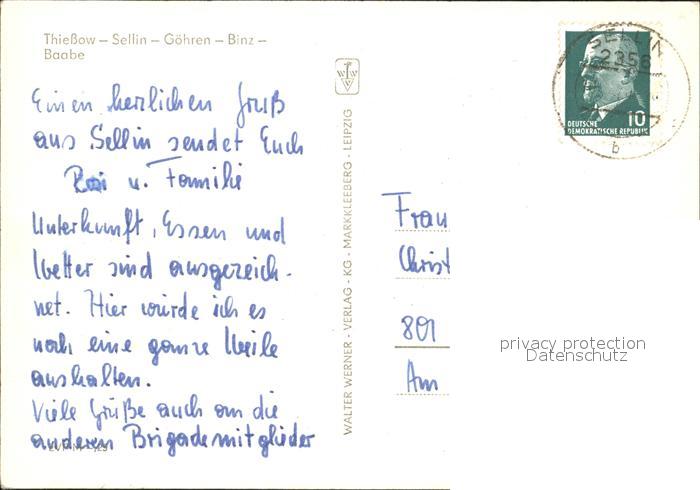 Thießow – Sellin – Göhren – Binz –
Baabe
Einen herzlichen Gruß
aus Sellin sendet Euch
u. Familie
Unterkunft, Essen und
Wetter sind ausgezeich-
net. Hier würde ich es
noch eine ganze Weile
aushalten.
Viele Grüße auch an die
anderen Brigademitglieder
WALTER WERNER · VERLAG · KG · MARKKLEEBERG · LEIPZIG
SELLIN
2356
b
DEUTSCHE
DEMOKRATISCHE REPUBLIK
10
Frau
Christ
801
Am
privacy protection
Datenschutz